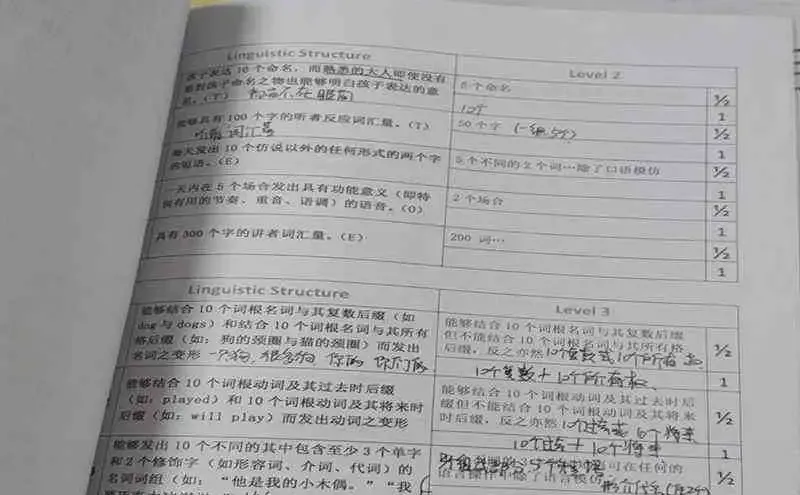 Linguistic Structure
Level 2
孩子发送 10 个命名，而熟悉的大人即使没有
看到孩子命名之物也能够明白孩子表达的意
思。（T） 物品不在眼前
5 个命名
½
10个
1
能够具有 100 个字的听者反应词汇量。（T）
听者词汇量
50 个字 (一组5个)
½
1
每天发出 10 个仿说以外的任何形式的两个字
的短语。（E）
5 个不同的 2 个词…除了口语模仿
½
1
一天内在 5 个场合发出具有功能意义（即特
有用的节奏、重音、语调）的语音。（O）
2 个场合
½
1
具有 300 个字的讲者词汇量。（E）
200 词…
½
1
Linguistic Structure
Level 3
能够结合 10 个词根名词与其复数后缀（如
dog 与 dogs）和结合 10 个词根名词与其所有
格后缀（如：狗的颈圈与猫的颈圈）而发出
名词之变形 一只狗 很多狗 你的 你们的
能够结合 10 个词根名词与其复数后缀
但不能结合 10 个词根名词与其所有格
后缀，反之亦然 10个复数或10个所有格
½
10个复数+10个所有格
1
能够结合 10 个词根动词及其过去时后缀
（如：played）和 10 个词根动词及其将来时
后缀（如：will play）而发出动词之变形
能够结合 10 个词根动词及其过去时后
缀但不能结合 10 个词根动词及其将来
时后缀，反之亦然 10个过去或 个将来
½
10个过去+10个将来
1
能够发出 10 个不同的其中包含至少 3 个单字
和 2 个修饰字（如形容词、介词、代词）的
名词词组（如：“他是我的小木偶。”“我
可在任何的
语言操作中除了语言模仿
½